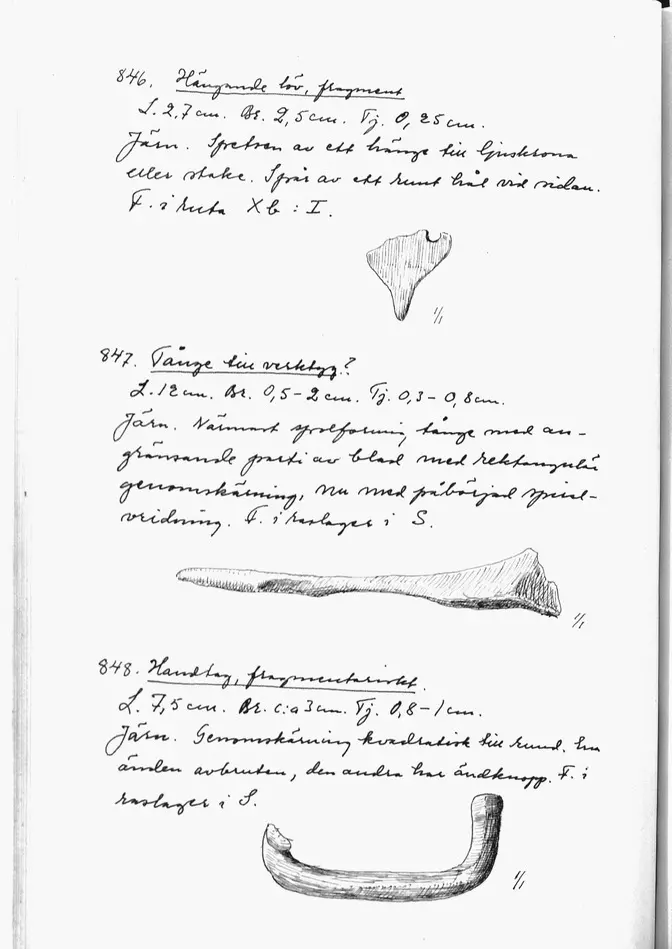 846. Hängande löv, fragment
L. 2,7 cm. Br. 2,5 cm. Tj. 0,25 cm.
Järn. Spetsen av ett hänge till ljuskrona
eller stake. Spår av ett runt hål vid sidan.
F. i ruta Xb : I.
1/1
847. Tånge till verktyg?
L. 12 cm. Br. 0,5 – 2 cm. Tj. 0,3 – 0,8 cm.
Järn. Närmast spolformig tånge med an-
gränsande parti av blad med rektangulär
genomskärning, nu med påbörjad spiral-
vridning. F. i raslager i S.
1/1
848. Handtag, fragmentariskt.
L. 7,5 cm. Br. c:a 3 cm. Tj. 0,8 – 1 cm.
Järn. Genomskärning kvadratisk till rund. Ena
änden avbruten, den andra har ändknopp. F. i
raslager i S.
1/1